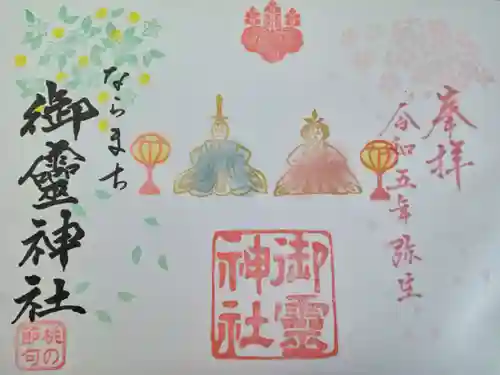 奉拝
令和五年弥生
御霊
神社
ならまち
御靈神社
桃の
節句